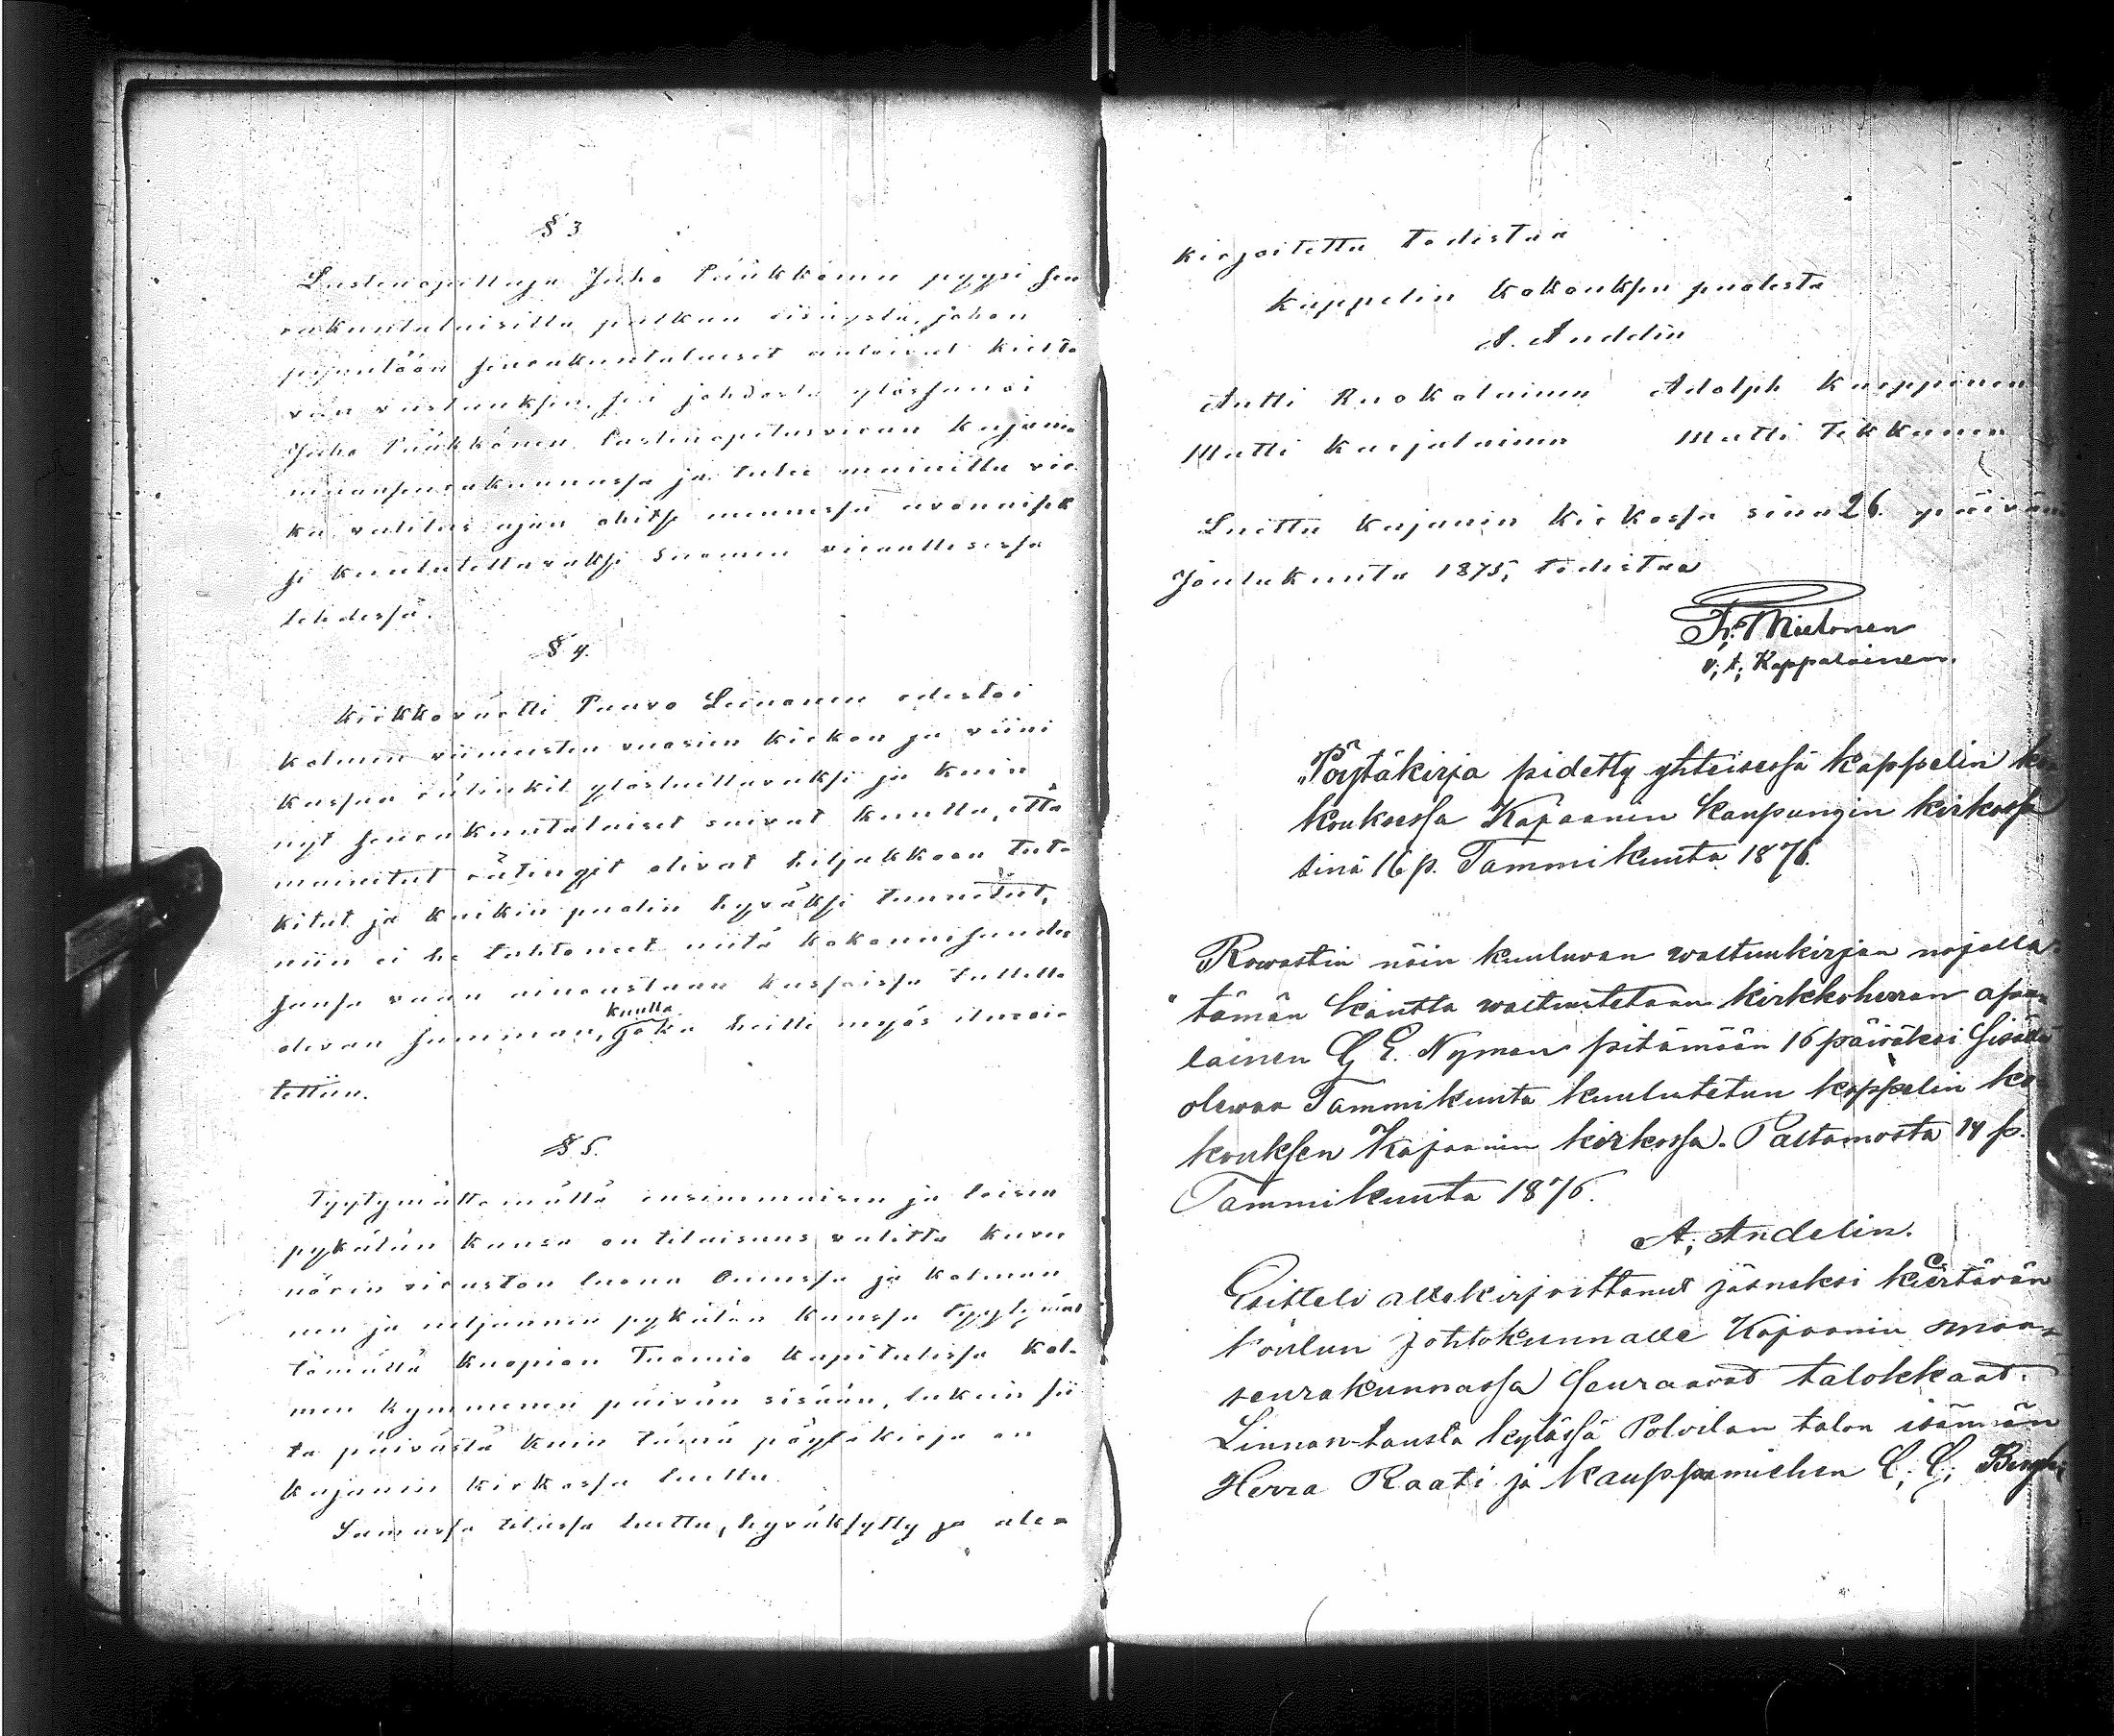 § 3
Lastenopettaja Juho Pääkkönen pyysi seu
rakuntalaisilta palkan lisäystä, johon
pyyntöön seurakuntalaiset antoivat kieltä
vän vastauksen. Sen johdosta ylössanoi
Juho Pääkkönen lastenopetusviran Kajanin
maaseurakunnassa ja tulee mainittu vir
ka valitus ajan ohitse mennessä avonaisek
si kuulutettavaksi Suomen virallisessa
lehdessä.
§ 4.
Kirkkoväärti Paavo Leinonen edestoi
kolmen viimeisten vuosien kirkon ja viini
kassan rätinkit ylösluettavaksi ja kuin
nyt seurakuntalaiset saivat kuulla, että
mainitut rätingit olivat hiljakkoon tut-
kitut ja kaikin puolin hyväksi tunnetut,
niin ei he tahtoneet niitä kokonaisuudes
sansa vaan ainoastaan kassaissa tallella
kuulla
olevan summan, joka heille myös ilmoi-
tettiin.
§ 5.
Tyytymättömällä ensimmäisen ja toisen
pykälän kanssa on tilaisuus valittaa kuver
nörin viraston luona Oulussa ja kolman
nen ja neljännen pykälän kanssa tyytymät
tömällä Kuopion Tuomio Kapitulissa kol-
men kymmenen päivän sisään, lukein sii
tä päivästä kuin tämä pöytäkirja on
Kajanin kirkossa luettu.
Samassa tilassa luettu, hyväksytty ja ale-
kirjoitettu todistaa
Kappelin kokouksen puolesta
A. Andelin
Antti Ruokolainen Adolph Karppinen
Matti Karjalainen Matti Tikkanen
Luettu Kajanin kirkossa sinä 26. päivän
Joulukuuta 1875, todistaa
Fr. Mietonen
v; t; Kappalainen.
„Pöytäkirja pidetty yhteisessä kappelin ko
kouksessa Kajaanin kaupungin kirkossa
sinä 16 p. Tammikuuta 1876.
Rowastin näin kuuluvan waltuukirjan nojalla:
" tämän kautta waltuutetaan kirkkoherran apu-
lainen G E. Nyman pitämään 16 päiväksi sisällä
olewaa Tammikuuta kuulutetun kappelin ko
kouksen Kajaanin kirkossa. Paltamosta 14 p.
Tammikuuta 1876.
A; Andelin.
Esitteli allekirjoittanut jäseneksi kiertävän
koulun johtokunnalle Kajaanin maa-
seurakunnassa seuraavat talokkaat:
Linnan-tausta kylässä Polvilan talon isännän
Herra Raati ja kauppamiehen C; G; Bergh;